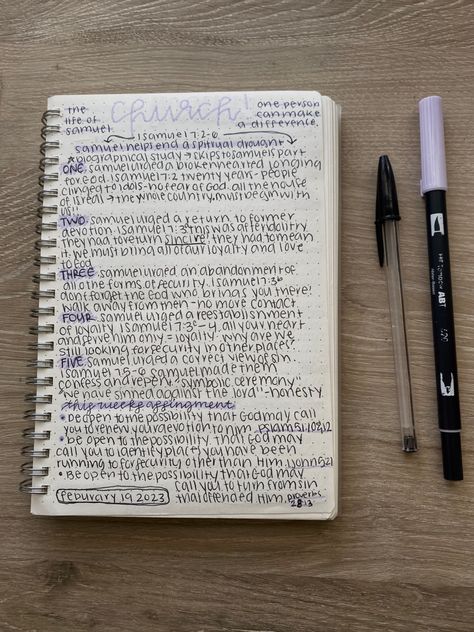 the
life of
samuel
church!
one person
can make
a difference.
1 samuel 7:2-6
samuel helps end a spiritual drought
*biographical study → skips to samuels part
ONE. samuel urged a brokenhearted longing
for God. 1 samuel 7:2 twenty years - people
clinged to idols - no fear of God. all the house
of isreal → the whole country, must begin with
us!!
TWO. samuel urged a return to former
devotion. 1 samuel 7:3ᵃ this was after idolitry
they had to return sincire! they had to mean
it. we must bring all of our loyalty and love
to God
THREE. samuel urged an abandonment of
all other forms of security. 1 samuel 7:3ᵇ
don't forget the God who brings you there!
walk away from then - no more contact.
FOUR. samuel urged a reestablishment
of loyalty. 1 samuel 7:3ᶜ-4. all your heart
and serve him only = loyalty. why are we
still looking for security in other places?
FIVE. samuel urged a correct view of sin.
1 samuel 7:5-6 samuel made them
confess and repent. "symbolic ceremony"
"we have sinned against the lord" - honesty
this weeks assingment:
• be open to the possibility that God may call
you to renew your devotion to him. psalm 51:10,12
• be open to the possibility that God may
call you to identify places you have been
running to for security other than Him. 1 john 5:21
• Be open to the possibility that God may
call you to turn from sin
that offended Him. proverbs
28:13
febuary 19 2023
ABT
620